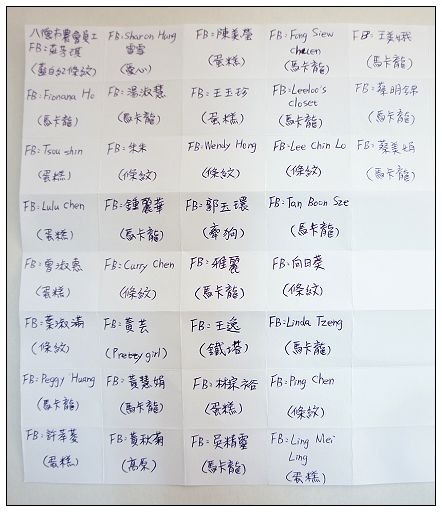 FB:莊子琪
(藍白紅條紋)
FB:Sharon Hung
雪雪
(愛心)
FB:陳美瑩
(蛋糕)
FB:Fong Siew
chuen
(馬卡龍)
FB:王美娥
(馬卡龍)
FB:Fionana Ho
(馬卡龍)
FB:湯淑慧
(馬卡龍)
FB:王玉珍
(蛋糕)
FB:Leeloo's
closet
(馬卡龍)
FB:蔡明錦
(馬卡龍)
FB:Tsou shin
(蛋糕)
FB:朱朱
(條紋)
FB:Wendy Hong
(條紋)
FB:Lee Chin Lo
(條紋)
FB:蔡美娟
(馬卡龍)
FB:Lulu Chen
(蛋糕)
FB:鍾麗華
(馬卡龍)
FB:郭玉環
(牽狗)
FB:Tan Boon Sze
(馬卡龍)
FB:曾淑惠
(蛋糕)
FB:Curry Chen
(條紋)
FB:雅麗
(馬卡龍)
FB:向日葵
(條紋)
FB:葉淑滿
(條紋)
FB:黃芸
(Pretty girl)
FB:王逸
(鐵塔)
FB:Linda Tzeng
(馬卡龍)
FB:Peggy Huang
(馬卡龍)
FB:黃慧娟
(馬卡龍)
FB:林宗裕
(蛋糕)
FB:Ping Chen
(條紋)
FB:許莘菱
(蛋糕)
FB:黃秋菊
(高原)
FB:吳精靈
(馬卡龍)
FB:Ling Mei
Ling
(蛋糕)